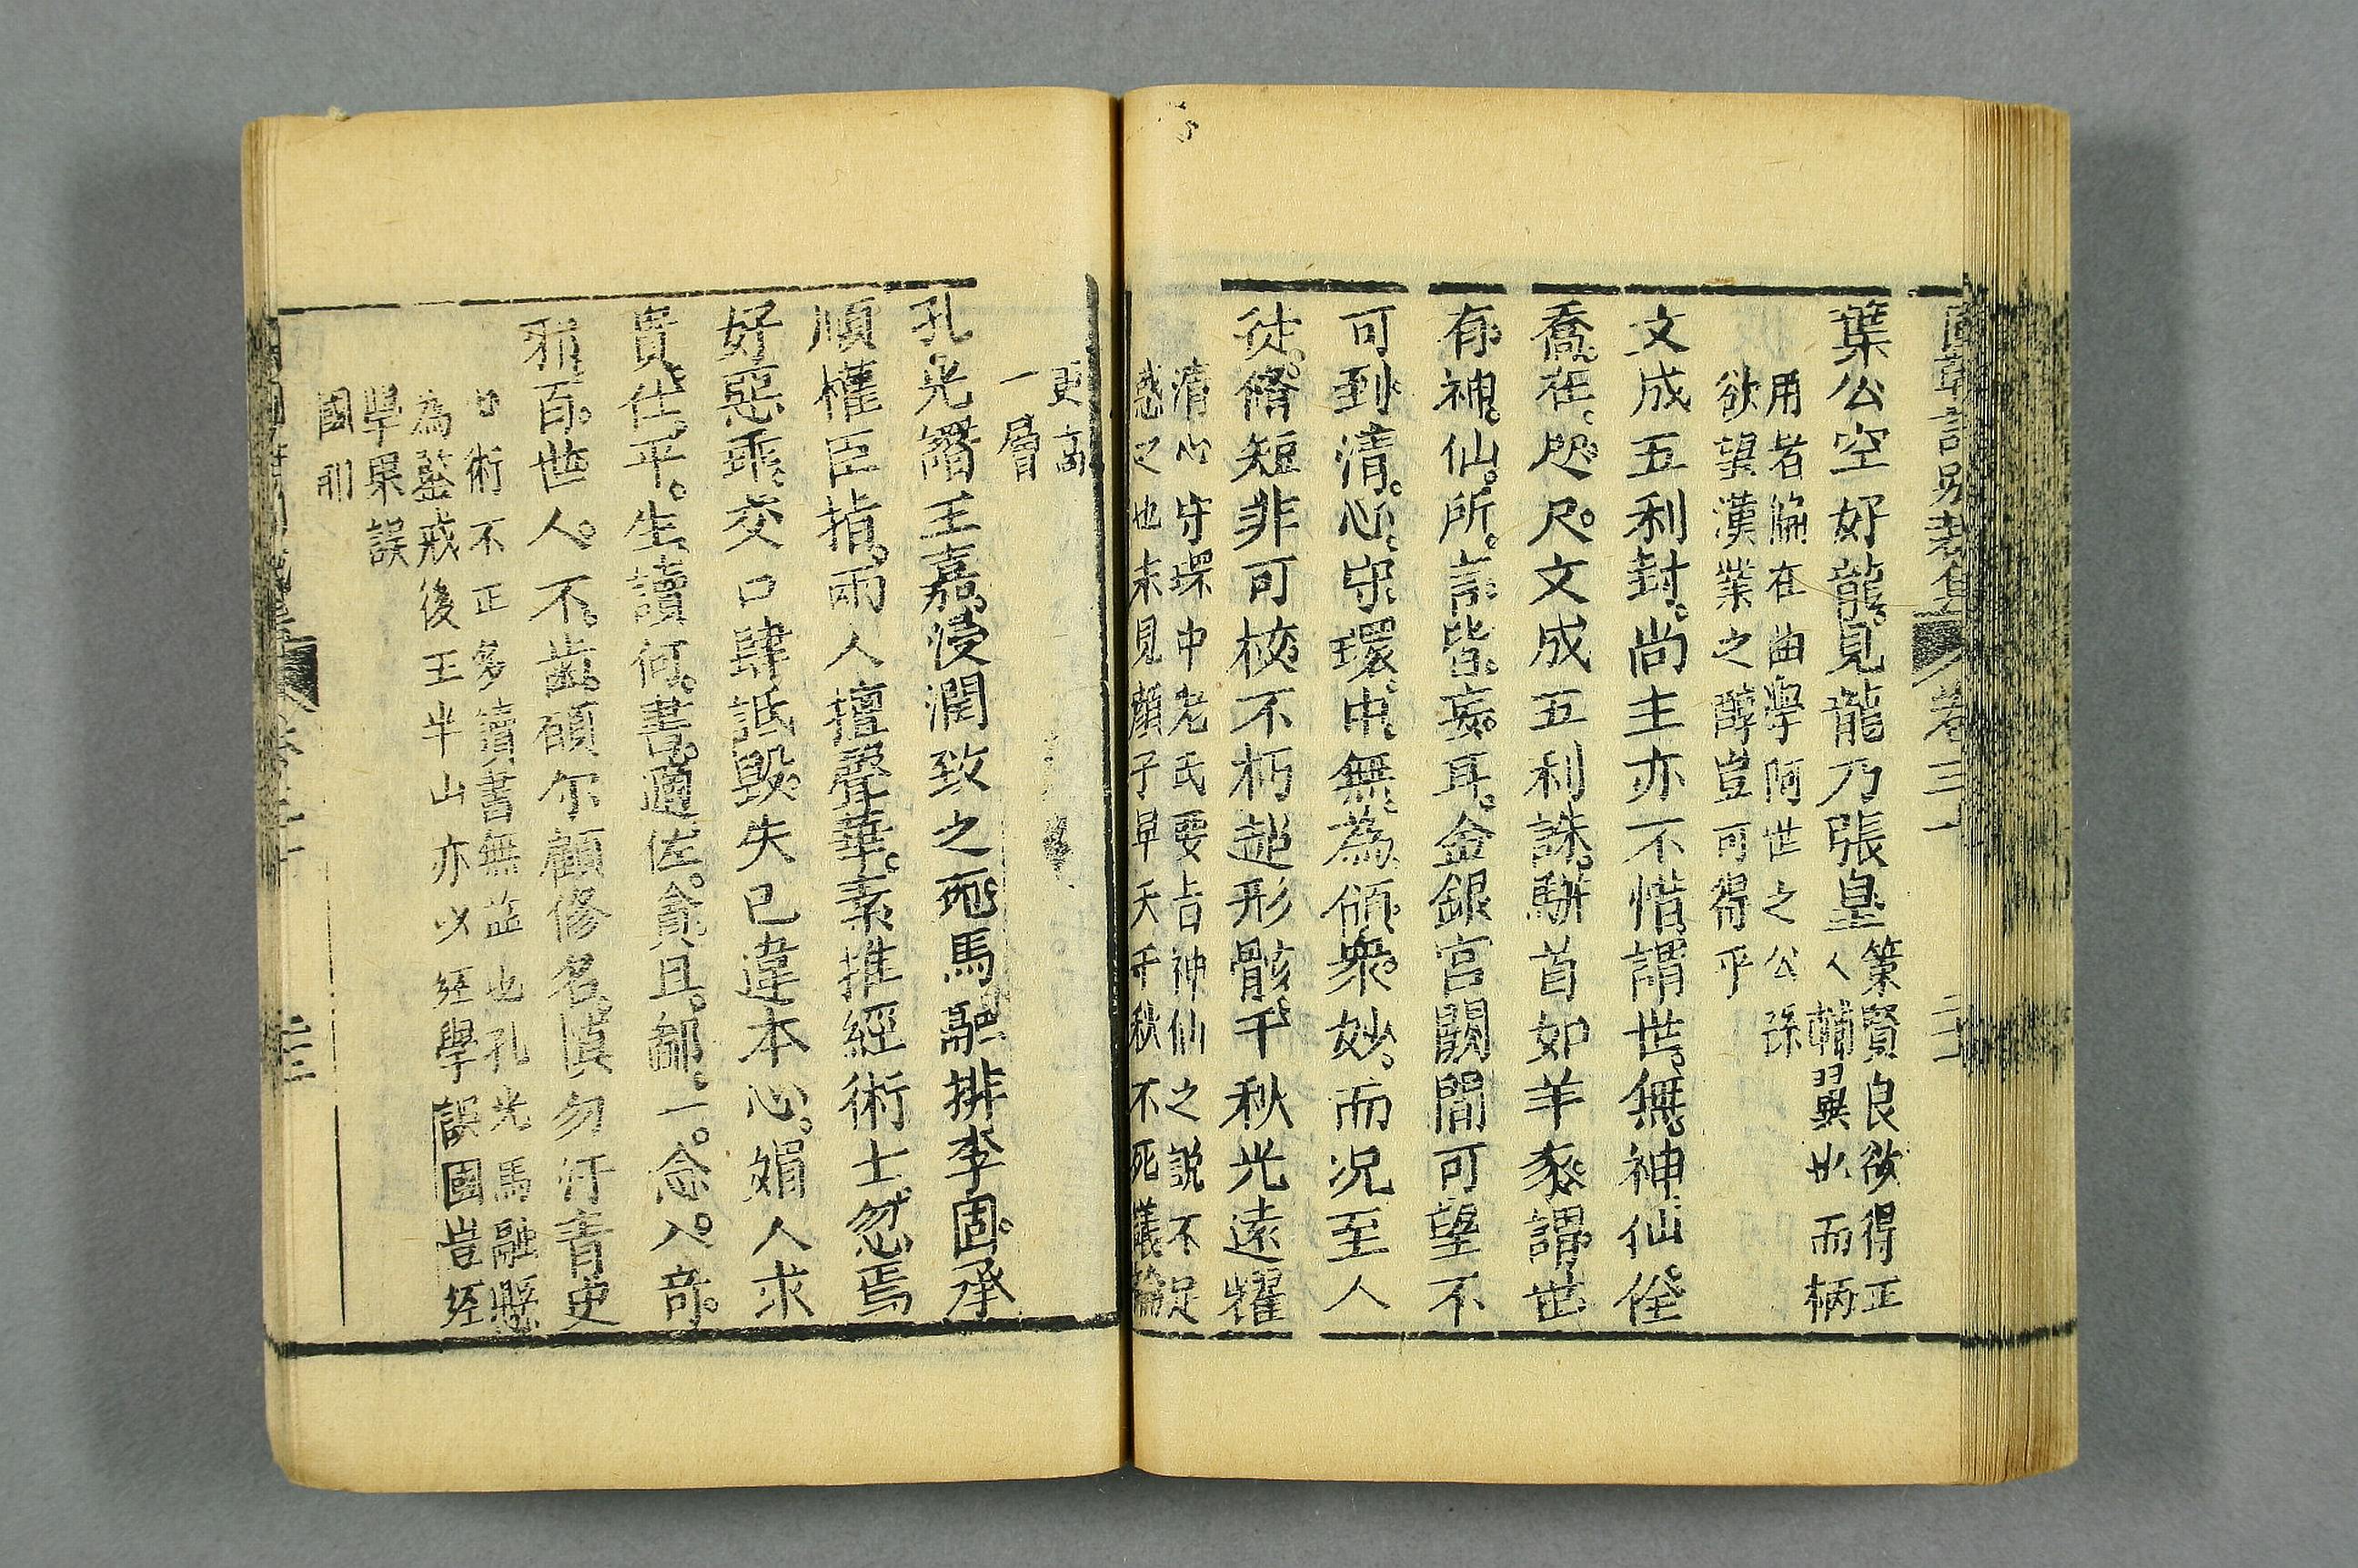 國朝詩別裁集 卷三十一
葉公空好龍見龍乃張皇
策賢良欲得正
人輔翼也而柄
用者偏在曲學阿世之公孫
欲望漢業之醇豈可得乎
文成五利封尚主亦不惜謂世無神仙佺
喬在咫尺文成五利誅駢首如羊豕謂世
有神仙所言皆妄耳金銀宮闕間可望不
可到清心守環中無為領衆妙而况至人
徒脩短非可校不朽超形骸千秋光遠耀
清心守環中老氏要旨神仙之說不足
惑之也末見顏子早夭千秋不死議論
更高
一層
孔光譖王嘉浸潤致之死馬融排李固承
順權臣指兩人擅聲華素推經術士忽焉
好惡乖交口肆詆毀失己違本心媚人求
貴仕平生讀何書適佐貪且鄙一念入奇
邪百世人不齒碩尔顧修名慎勿汙青史
心術不正多讀書無益也孔光馬融懸
為鑒戒後王半山亦以經學誤國豈經
學果誤
國耶